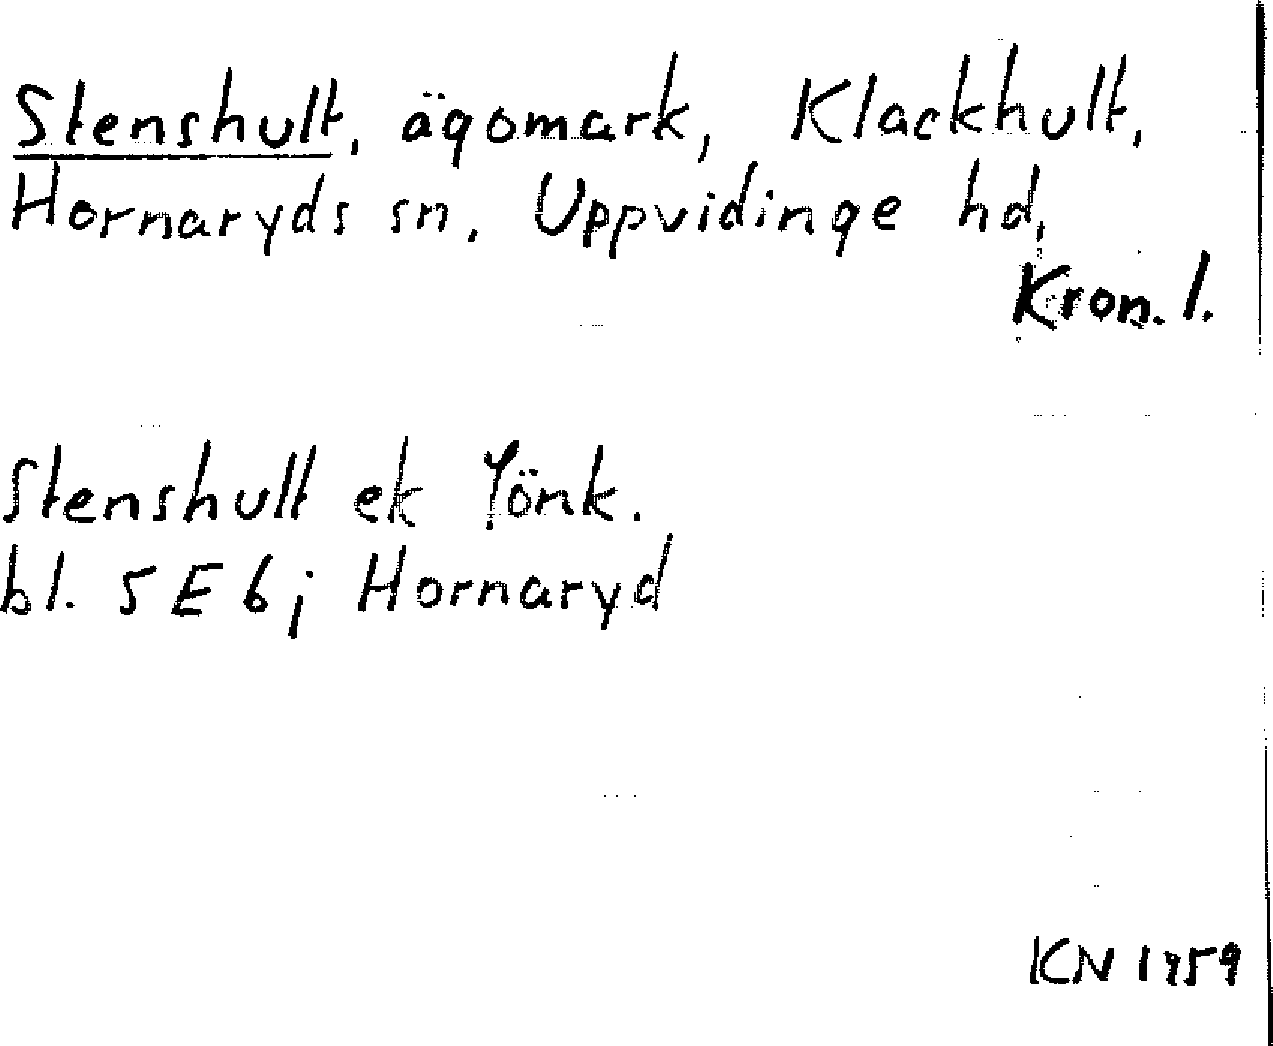 Stenshult, ägomark, Klackhult,
Hornaryds sn, Uppvidinge hd,
Kron. l.
Stenshult ek Jönk.
bl. 5 E 6; Hornaryd
KN 1959